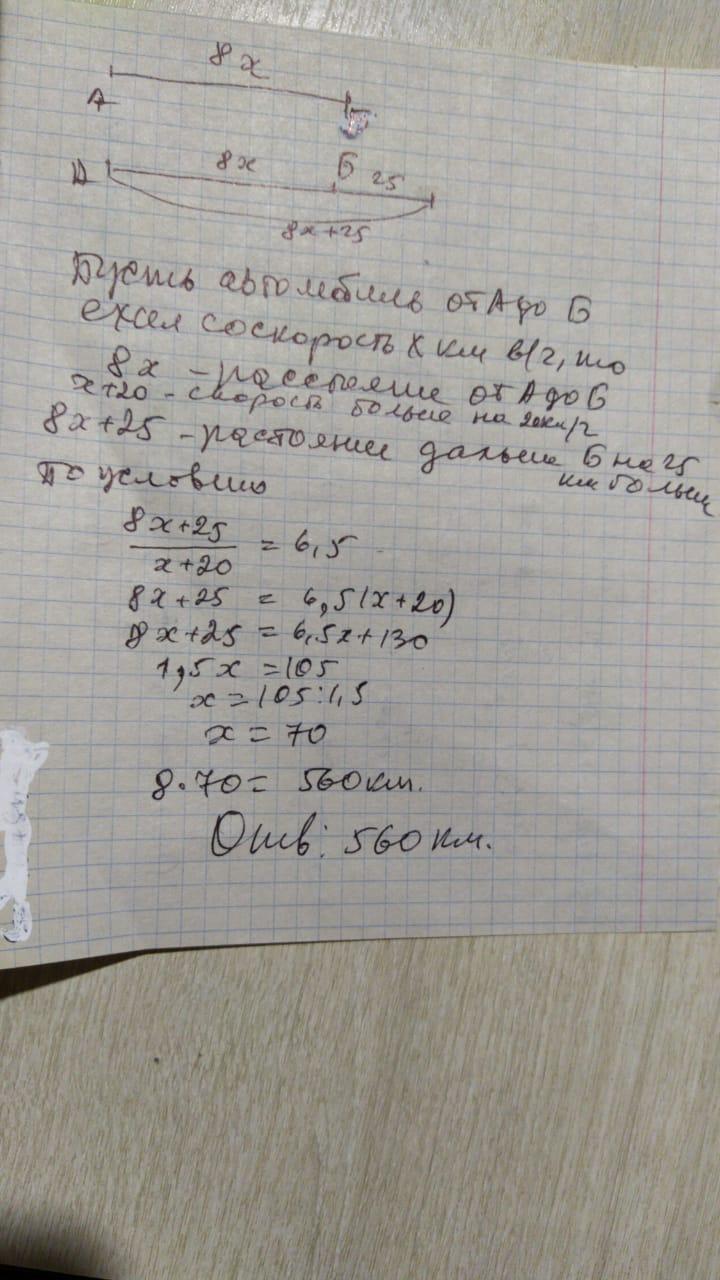 8x
А
8x Б 25
А
8x+25
Пусть автомобиль от А до Б
ехал со скорость x км в/г, то
8x - рассыяние от А до Б
x+20 - скорость больше на 20км/г
8x+25 - растояние дальше Б на 25
км больш
По условию
8x+25
x+20
= 6,5
8x+25 = 6,5(x+20)
8x+25 = 6,5x+130
1,5x = 105
x = 105:1,5
x = 70
8·70 = 560 км.
Отв: 560 км.